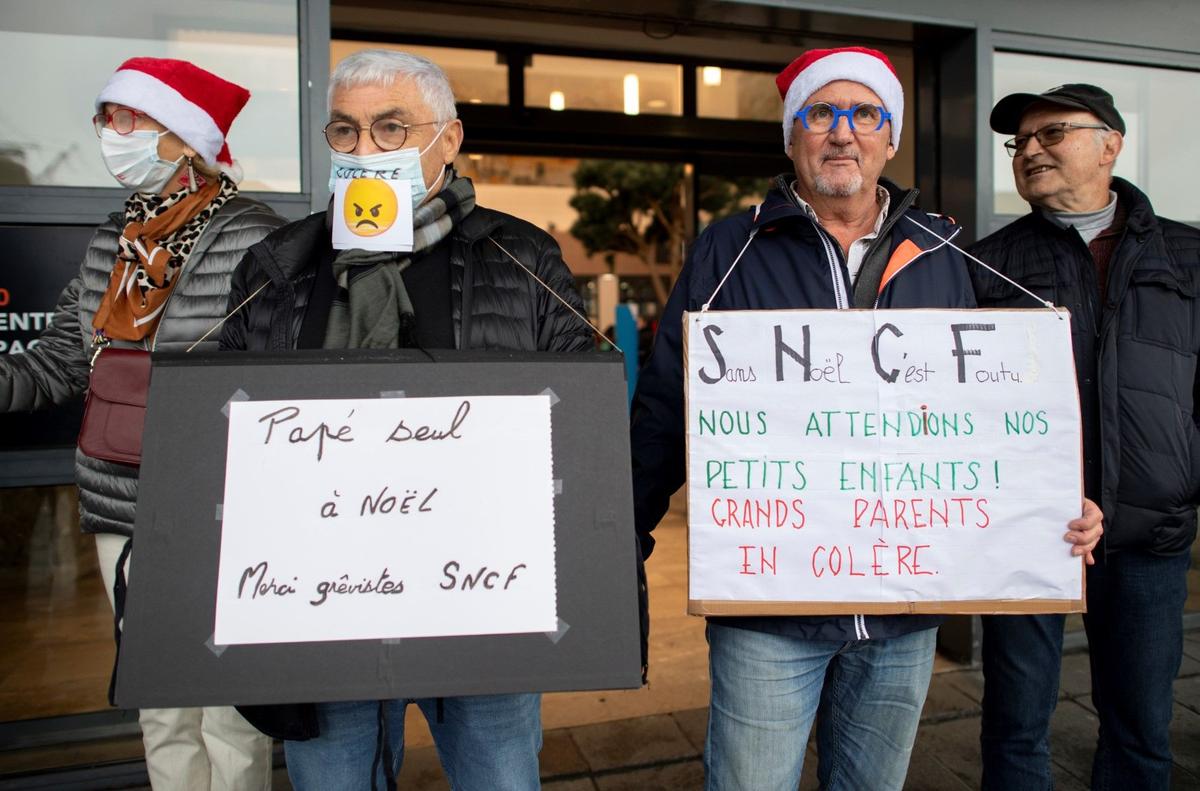 COLÈRE
Papé seul
à NOËL
Merci grêvistes SNCF
Sans Noël C'est Foutu!
NOUS ATTENDiONS NOS
PETITS ENFANTS!
GRANDS PARENTS
EN COLÈRE.